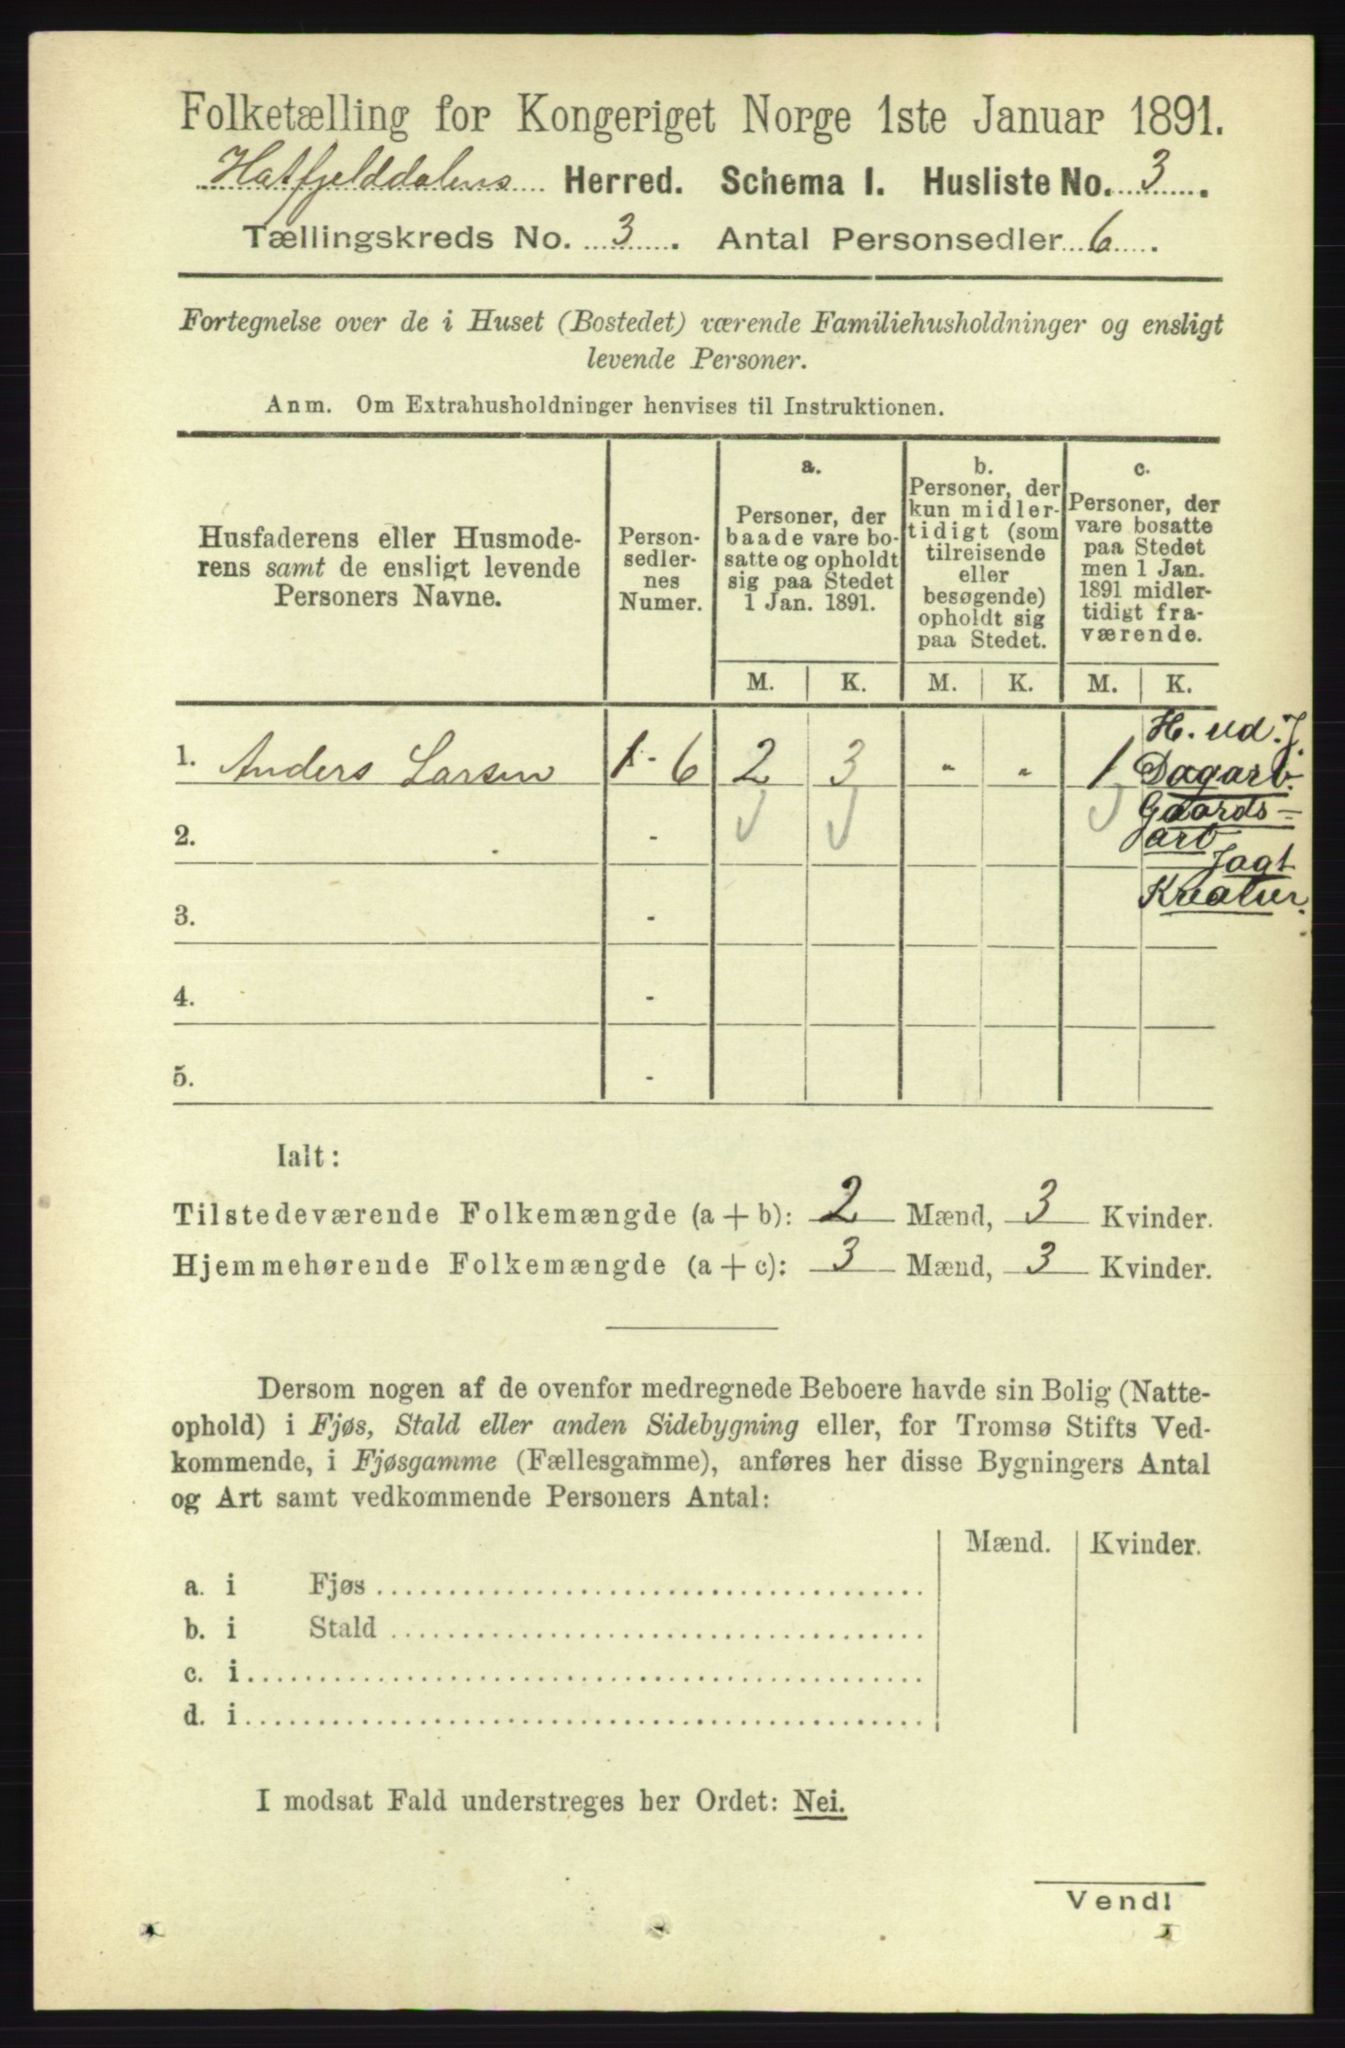 Folketælling for Kongeriget Norge 1ste Januar 1891.
Hatfjelddalens Herred. Schema I. Husliste No. 3.
Tællingskreds No. 3. Antal Personsedler 6.
Fortegnelse over de i Huset (Bostedet) værende Familiehusholdninger og ensligt
levende Personer.
Anm. Om Extrahusholdninger henvises til Instruktionen.
Husfaderens eller Husmode-
rens samt de ensligt levende
Personers Navne.
Person-
sedler-
nes
Numer.
a.
Personer, der
baade vare bo-
satte og opholdt
sig paa Stedet
1 Jan. 1891.
b.
Personer, der
kun midler-
tidigt (som
tilreisende
eller
besøgende)
opholdt sig
paa Stedet.
c.
Personer, der
vare bosatte
paa Stedet
men 1 Jan.
1891 midler-
tidigt fra-
værende.
M. K. M. K. M. K.
1. Anders Larsen 1 - 6 2 3 " " 1
H. ud. J.
Dagarb.
Gaards-
arb
Jagt
Kreatur.
2. -
3. -
4. -
5. -
Ialt:
Tilstedeværende Folkemængde (a + b): 2 Mænd, 3 Kvinder.
Hjemmehørende Folkemængde (a + c): 3 Mænd, 3 Kvinder.
Dersom nogen af de ovenfor medregnede Beboere havde sin Bolig (Natte-
ophold) i Fjøs, Stald eller anden Sidebygning eller, for Tromsø Stifts Ved-
kommende, i Fjøsgamme (Fællesgamme), anføres her disse Bygningers Antal
og Art samt vedkommende Personers Antal:
Mænd. Kvinder.
a. i Fjøs
b. i Stald
c. i
d. i
I modsat Fald understreges her Ordet: Nei.
Vendl